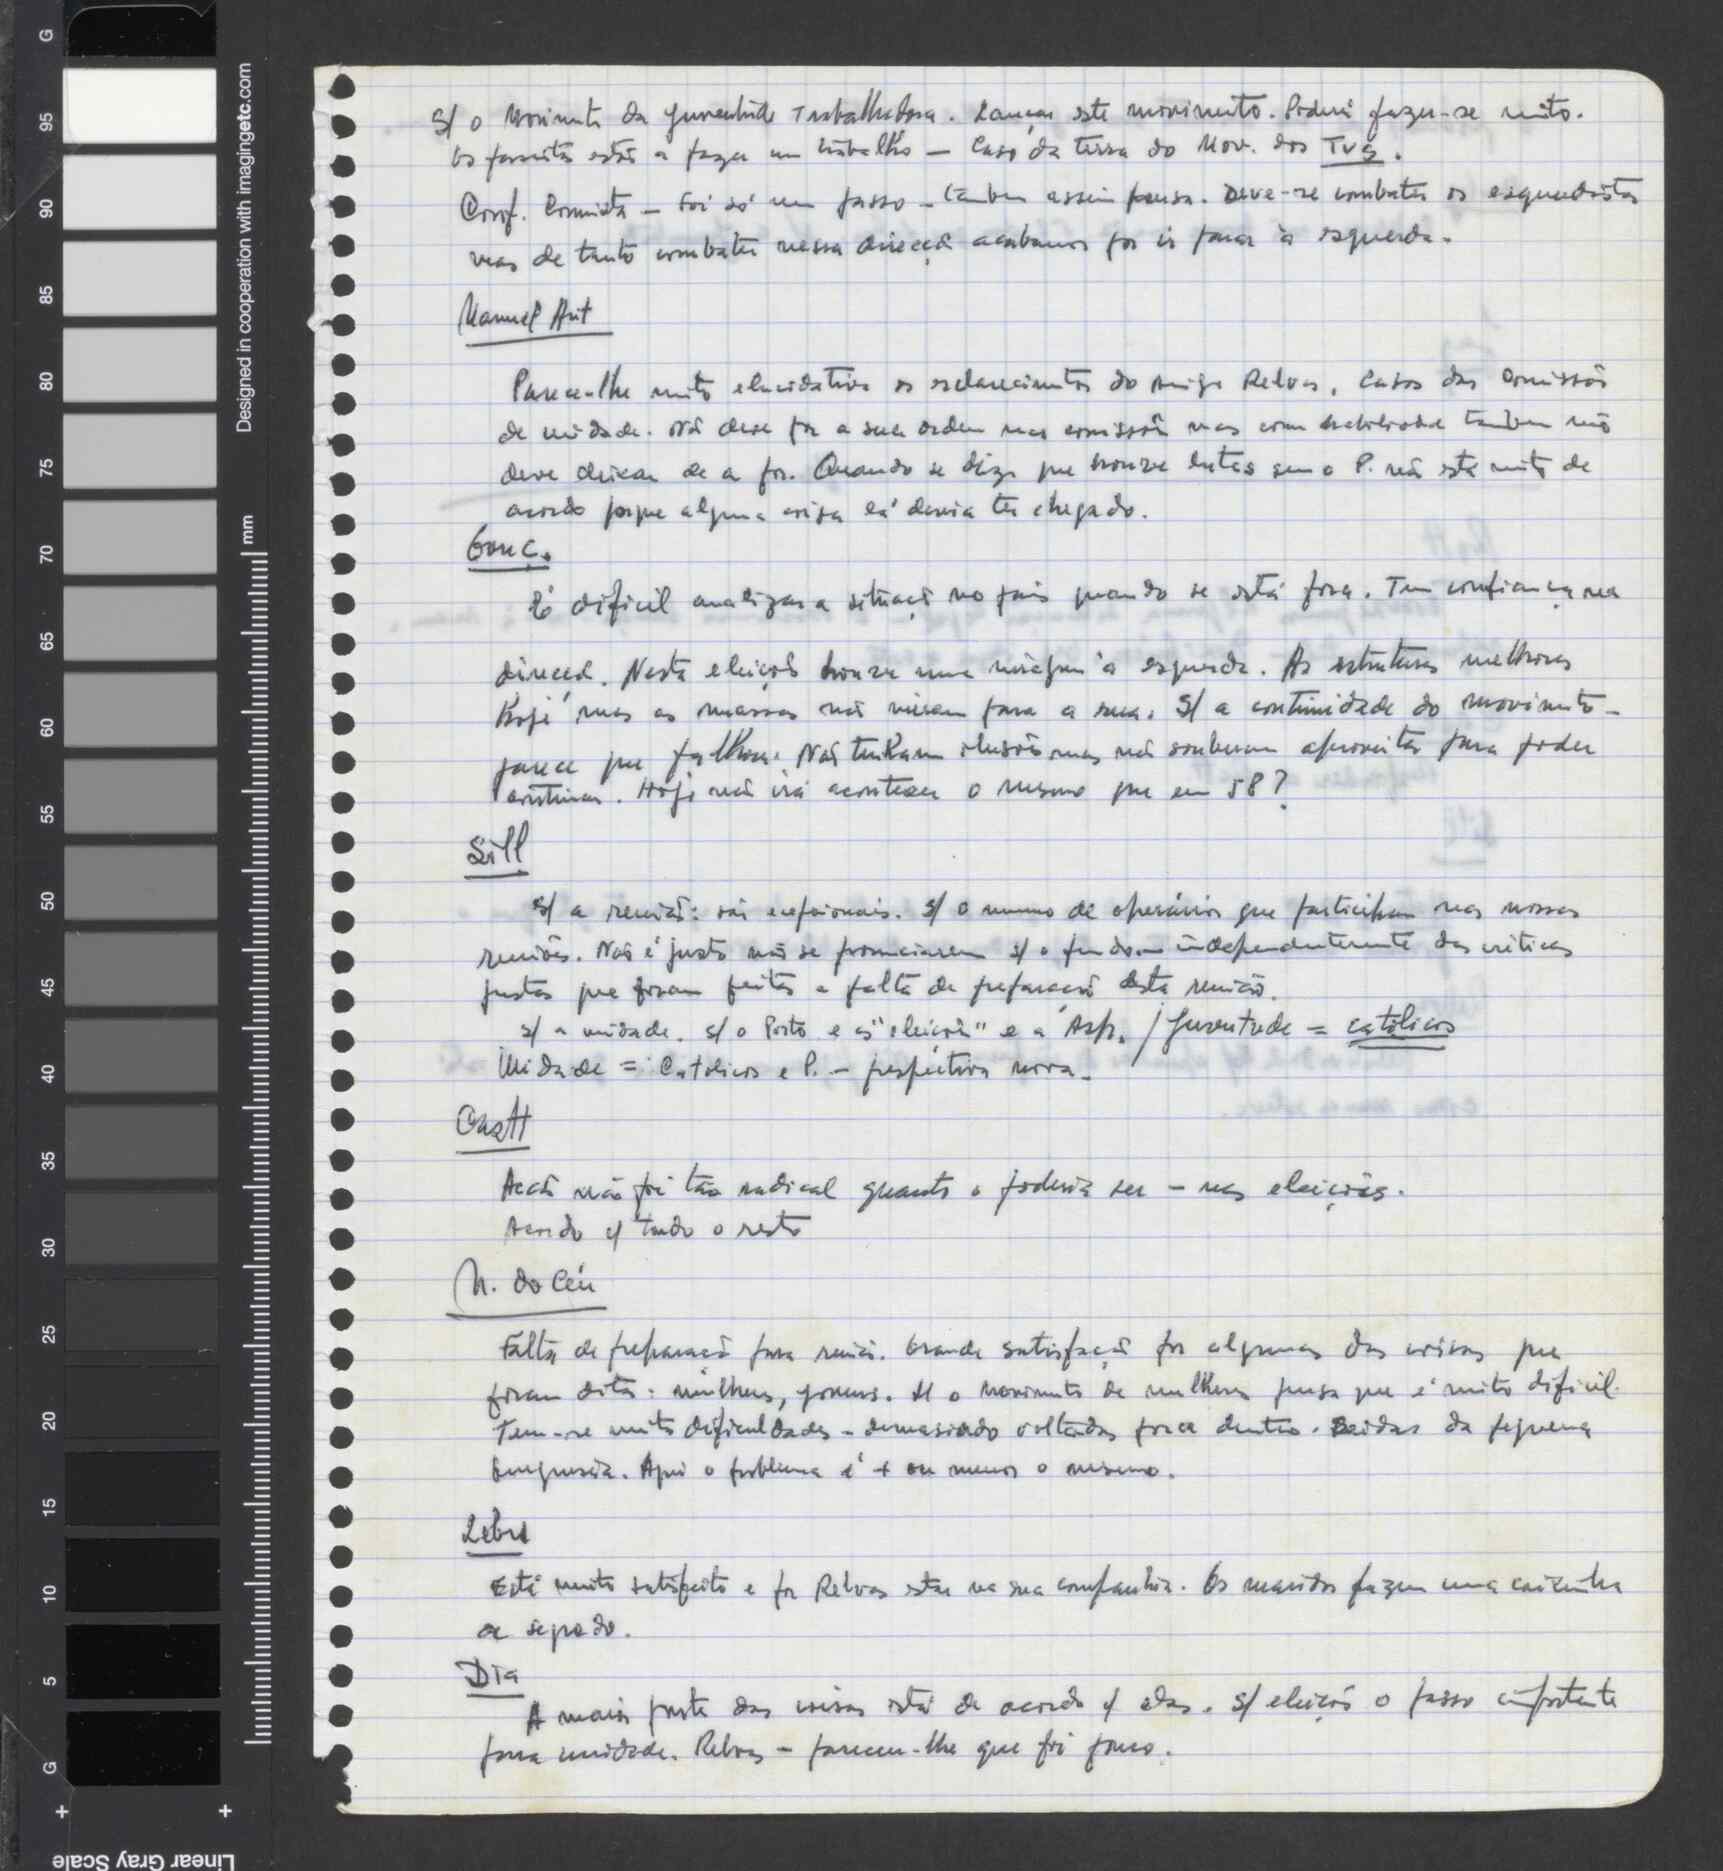 S/ o Movimento da Juventude Trabalhadora. Lançar este movimento. Poderá fazer-se muito.
Os fascistas estão a fazer um trabalho — Caso da terra do Mov. dos TVS.
Conf. Comunista — Foi só um passo — também assim pensa. Deve-se combater os esquerdistas
mas de tanto combater nessa direcção acabamos por ir parar à esquerda.
Manuel Ant
Parece-lhe muito elucidativa os esclarecimentos do amigo Relvas. Casos das Comissões
de unidade. Não deve pôr a sua ordem nas comissões mas com habilidade também não
deve deixar de a pôr. Quando se diz que houve lutas sem o P. não está muito de
acordo porque alguma coisa lá devia ter chegado.
Gonç.
É dificil analizar a situação no país quando se está fora. Tem confiança na
direcção. Nesta eleições houve uma viragem à esquerda. As estruturas melhores
hoje mas as massas não vieram para a rua. S/ a continuidade do movimento —
parece que falhou. Não tinham ilusões mas não souberam aproveitar para poder
continuar. Hoje não irá acontecer o mesmo que em 58?
Sill
S/ a reunião: são excepcionais. S/ o numero de operários que participam nas nossas
reuniões. Não é justo não se pronunciarem s/ o fundo — independentemente das criticas
justas que foram feitas a falta de preparação desta reunião.
S/ a unidade. S/ o Porto e as "eleições" e a Asp. / Juventude = católicos
Unidade = Catolicos e P. — perspectiva nova.
Castt
Acção não foi tão radical quanto o poderia ser — nas eleições.
Acordo c/ tudo o resto
M. do Céu
Falta de preparação para reunião. Grande satisfação por algumas das coisas que
foram ditas: mulheres, jovens. S/ o movimento de mulheres pensa que é muito dificil.
Tem-se muitas dificuldades — demasiado voltadas para dentro. Saidas da pequena
burguesia. Aqui o problema é + ou menos o mesmo.
Lebre
Está muito satisfeito e por Relvas estar na sua companhia. Os maridos fazem uma coisinha
Dia
A maior parte das coisas está de acordo c/ elas. S/ eleições o passo importente
para unidade. Relvas — pareceu-lhe que foi pouco.
Designed in cooperation with imagingetc.com
mm
G
95
90
85
80
75
70
65
60
55
50
45
40
35
30
25
20
15
10
5
G
Linear Gray Scale